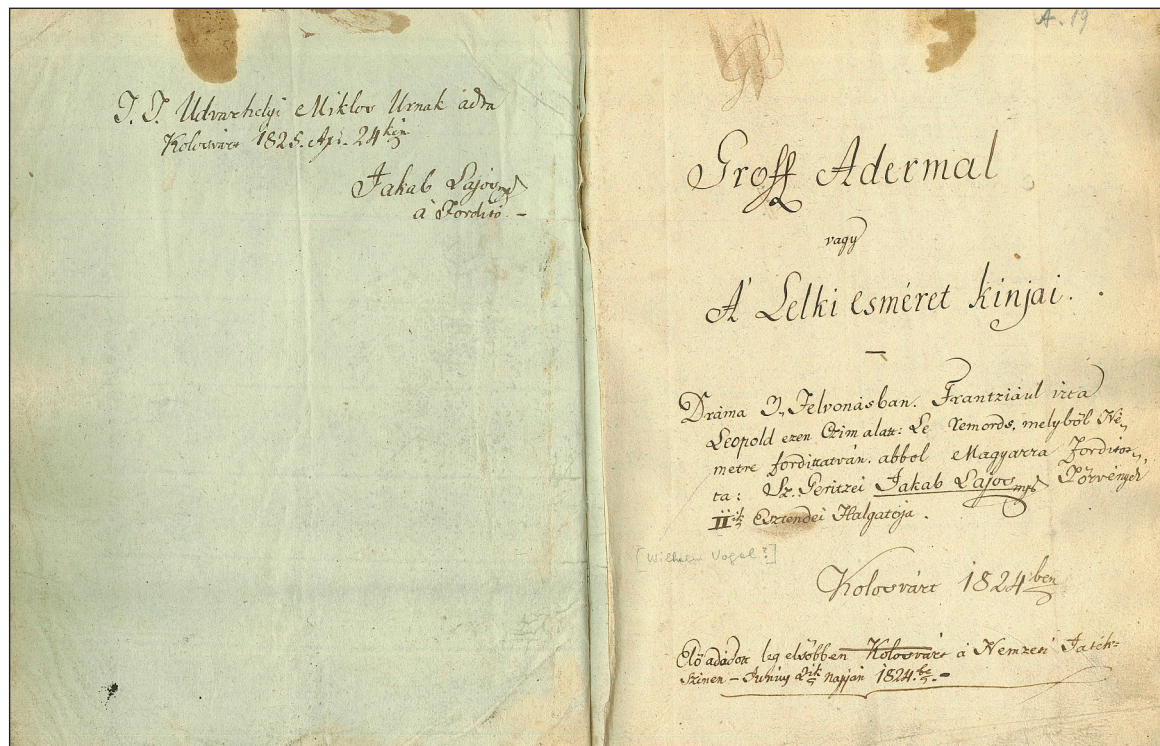 T. T. Udvarhelyi Miklos Urnak adta
Kolosvárt 1825. Apr. 24kén
Jakab Lajos mpr
a' Fordito. -
A. 19
Groff Adermal
vagy
A' Lelki esméret kinjai.
Dráma 3, Felvonásban. Frantziául irta
Leopold ezen Czim alatt: Le Remords, melyből Né„
metre fordittatván, abbol Magyarra Forditot„
ta: Sz. Geritzei Jakab Lajos mpr Törvények
IIik Esztendei Halgatója.
[Wilhelm Vogel?]
Kolosvárt 1824ben
Elő adódott leg elsőbben Kolosvárt a Nemzeti Játék-
Szinen - Junius 2ik napján 1824.be. -